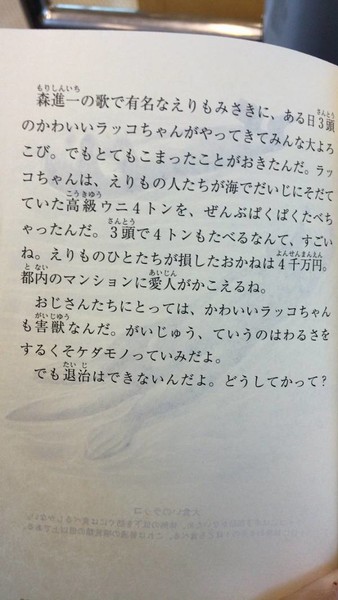 森進一の歌で有名なえりもみさきに、ある日3頭
のかわいいラッコちゃんがやってきてみんな大よろ
こび。でもとてもこまったことがおきたんだ。ラッ
コちゃんは、えりもの人たちが海でだいじにそだて
ていた高級ウニ4トンを、ぜんぶぱくぱくたべち
ゃったんだ。3頭で4トンもたべるなんて、すごい
ね。えりものひとたちが損したおかねは4千万円。
都内のマンションに愛人がかこえるね。
おじさんたちにとっては、かわいいラッコちゃん
も害獣なんだ。がいじゅう、ていうのはわるさを
するくそケダモノっていみだよ。
でも退治はできないんだよ。どうしてかって?